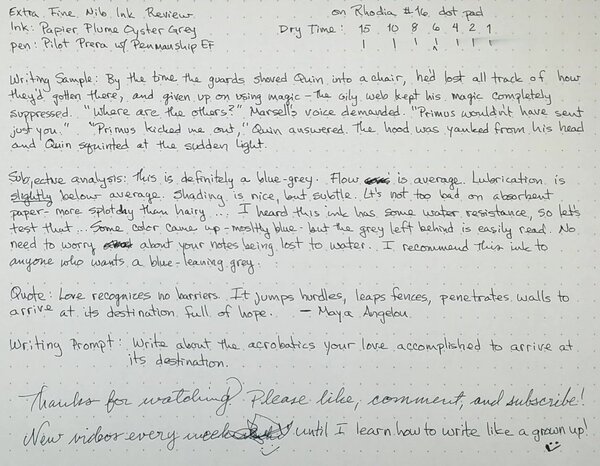 Extra Fine Nib Ink Review on Rhodia #16 dot pad
Ink: Papier Plume Oyster Grey Dry Time: 15 10 8 6 4 2 1
Pen: Pilot Prera w/ Penmanship EF
Writing Sample: By the time the guards shoved Quin into a chair, he'd lost all track of how
they'd gotten there, and given up on using magic - the oily web kept his magic completely
suppressed. "Where are the others?" Marsell's voice demanded. "Primus wouldn't have sent
just you." "Primus kicked me out," Quin answered. The hood was yanked from his head
and Quin squinted at the sudden light.
Subjective analysis: This is definitely a blue-grey. Flow is average. Lubrication is
slightly below average. Shading is nice, but subtle. It's not too bad on absorbent
paper - more splotchy than hairy... I heard this ink has some water resistance, so let's
test that... Some color came up - mostly blue - but the grey left behind is easily read. No
need to worry about your notes being lost to water. I recommend this ink to
anyone who wants a blue-leaning grey.
Quote: Love recognizes no barriers. It jumps hurdles, leaps fences, penetrates walls to
arrive at its destination full of hope. - Maya Angelou
Writing Prompt: Write about the acrobatics your love accomplished to arrive at
its destination.
Thanks for watching! Please like, comment, and subscribe!
New videos every week until I learn how to write like a grown up!